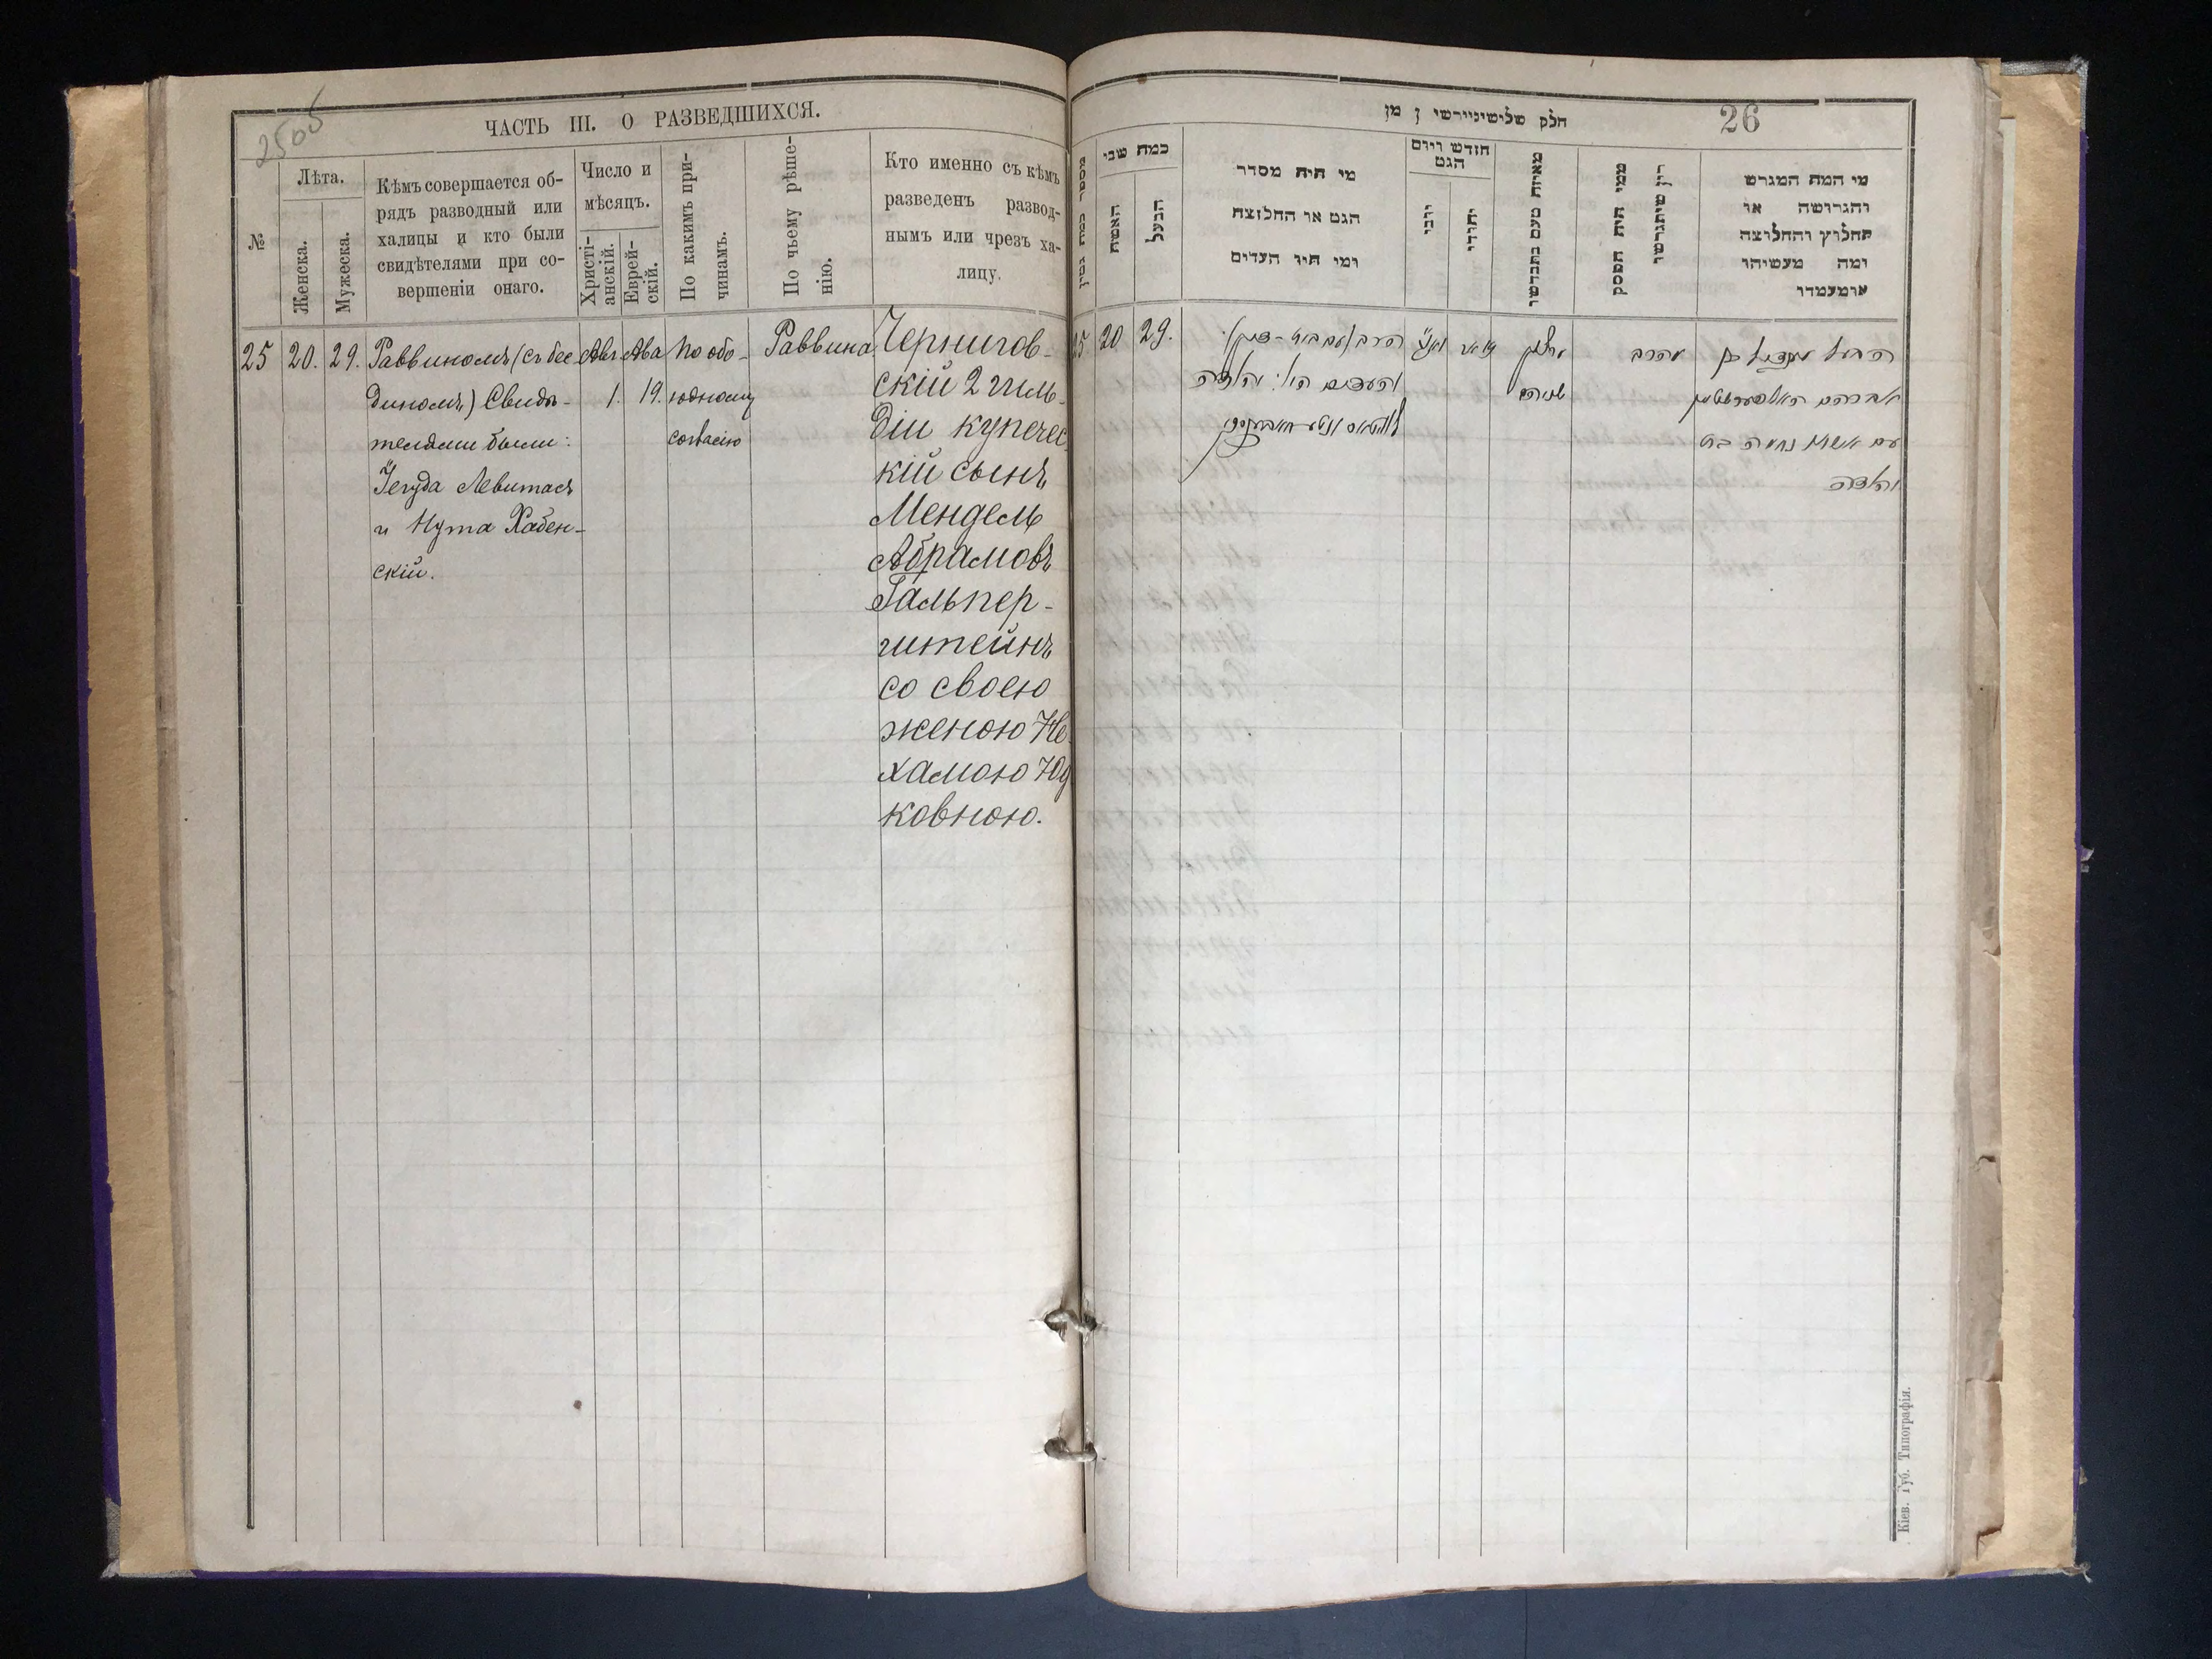 2505
ЧАСТЬ III. О РАЗВЕДШИХСЯ.
№
Лѣта.
Женска.
Мужеска.
Кѣмъ совершается об-
рядъ разводный или
халицы и кто были
свидѣтелями при со-
вершеніи онаго.
Число и
мѣсяцъ.
Христі-
анскій.
Еврей-
скій.
По какимъ при-
чинамъ.
По чьему рѣше-
нію.
Кто именно съ кѣмъ
разведенъ развод-
нымъ или чрезъ ха-
лицу.
25
20.
29.
Раввиномъ (съ бес
диномъ) Свидѣ-
телями были:
Іегуда Левитасъ
и Нута Хабен-
скій.
Авг.
1.
Ава
19.
По обо-
юдному
согласію
Раввина
Чернигов-
скій 2 гиль-
діи купечес
кій сынъ
Мендель
Абрамовъ
Гальпер-
штейнъ
со своею
женою Не
хамою Юд
ковною.
26
כמה שני
האשה
הבעל
מי היה מסדר
הגט או החלוצה
ומי היו העדים
חודש ויום
הגט
יוני
יהודי
מאיזה טעם נתגרשו
ממי היה הפסק
דין שיתגרשו
מי המה המגרש
והגרושה או
החלוץ והחלוצה
ומה מעשיהו
ומעמדו
25
20
29.
הרב
מהרב
הבעל מענדיל בן
אברהם האלפערשטיין
עם אשתו נחמה בת
יהודה
Кіев. Губ. Типографія.